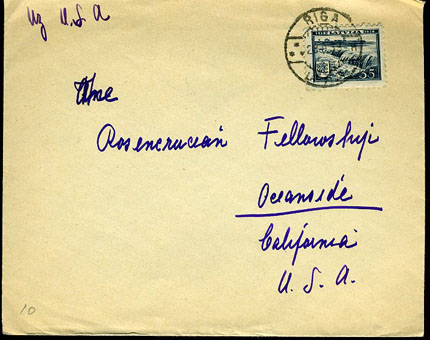 Uz U.S.A
The
Rosencrucian Fellowship
Oceanside
California
U. S. A.
RIGA
LATVIJA
35
10